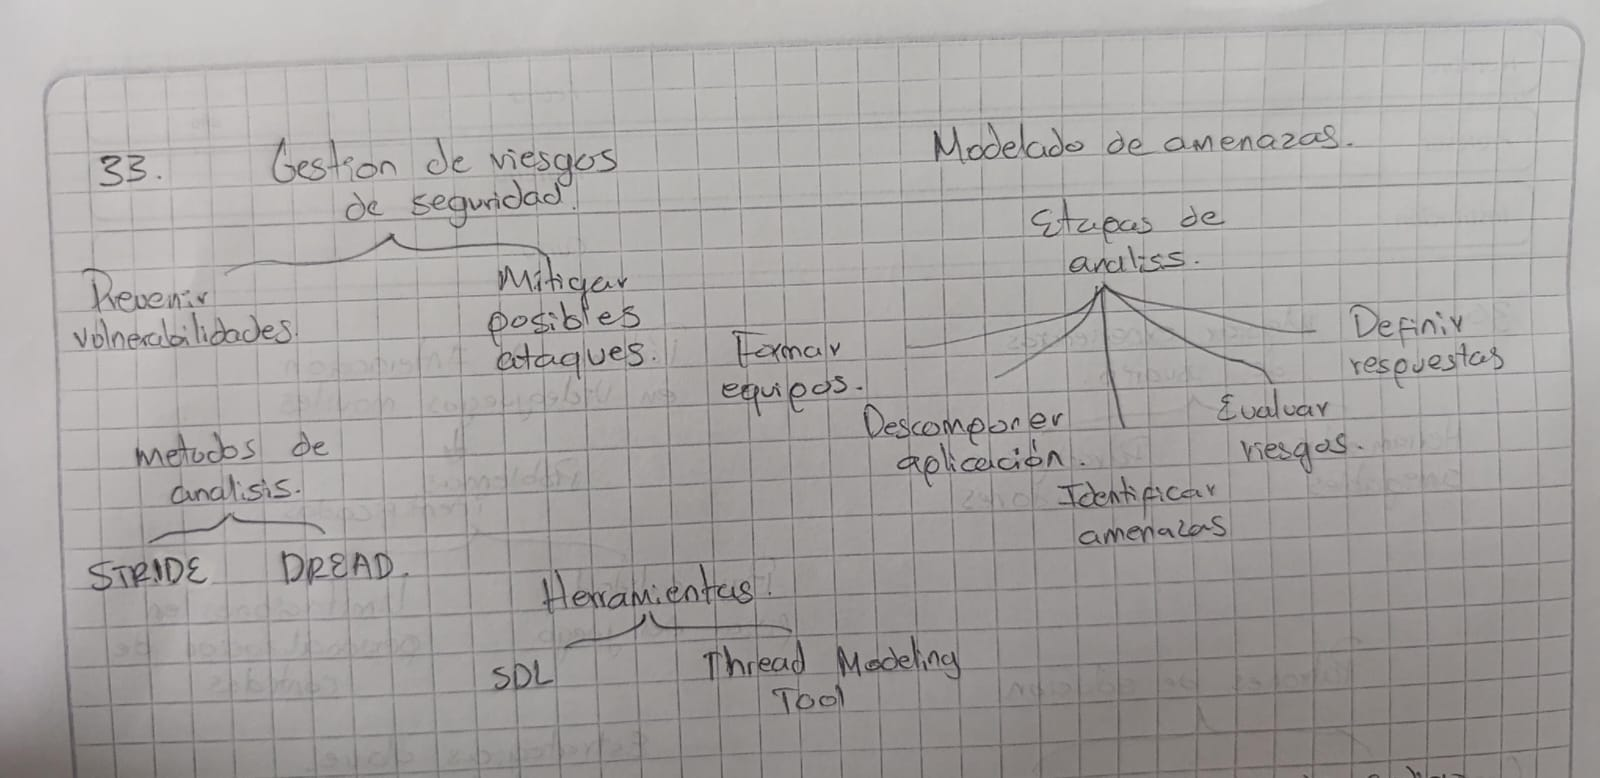 33.
Gestion de riesgos
de seguridad.
Prevenir
vulnerabilidades.
Mitigar
posibles
ataques.
metodos de
analisis.
STRIDE
DREAD.
Herramientas.
SDL
Thread Modeling
Tool
Modelado de amenazas.
Etapas de
analiss.
Formar
equipos.
Descomponer
aplicación.
Identificar
amenazas
Evaluar
riesgos.
Definir
respuestas